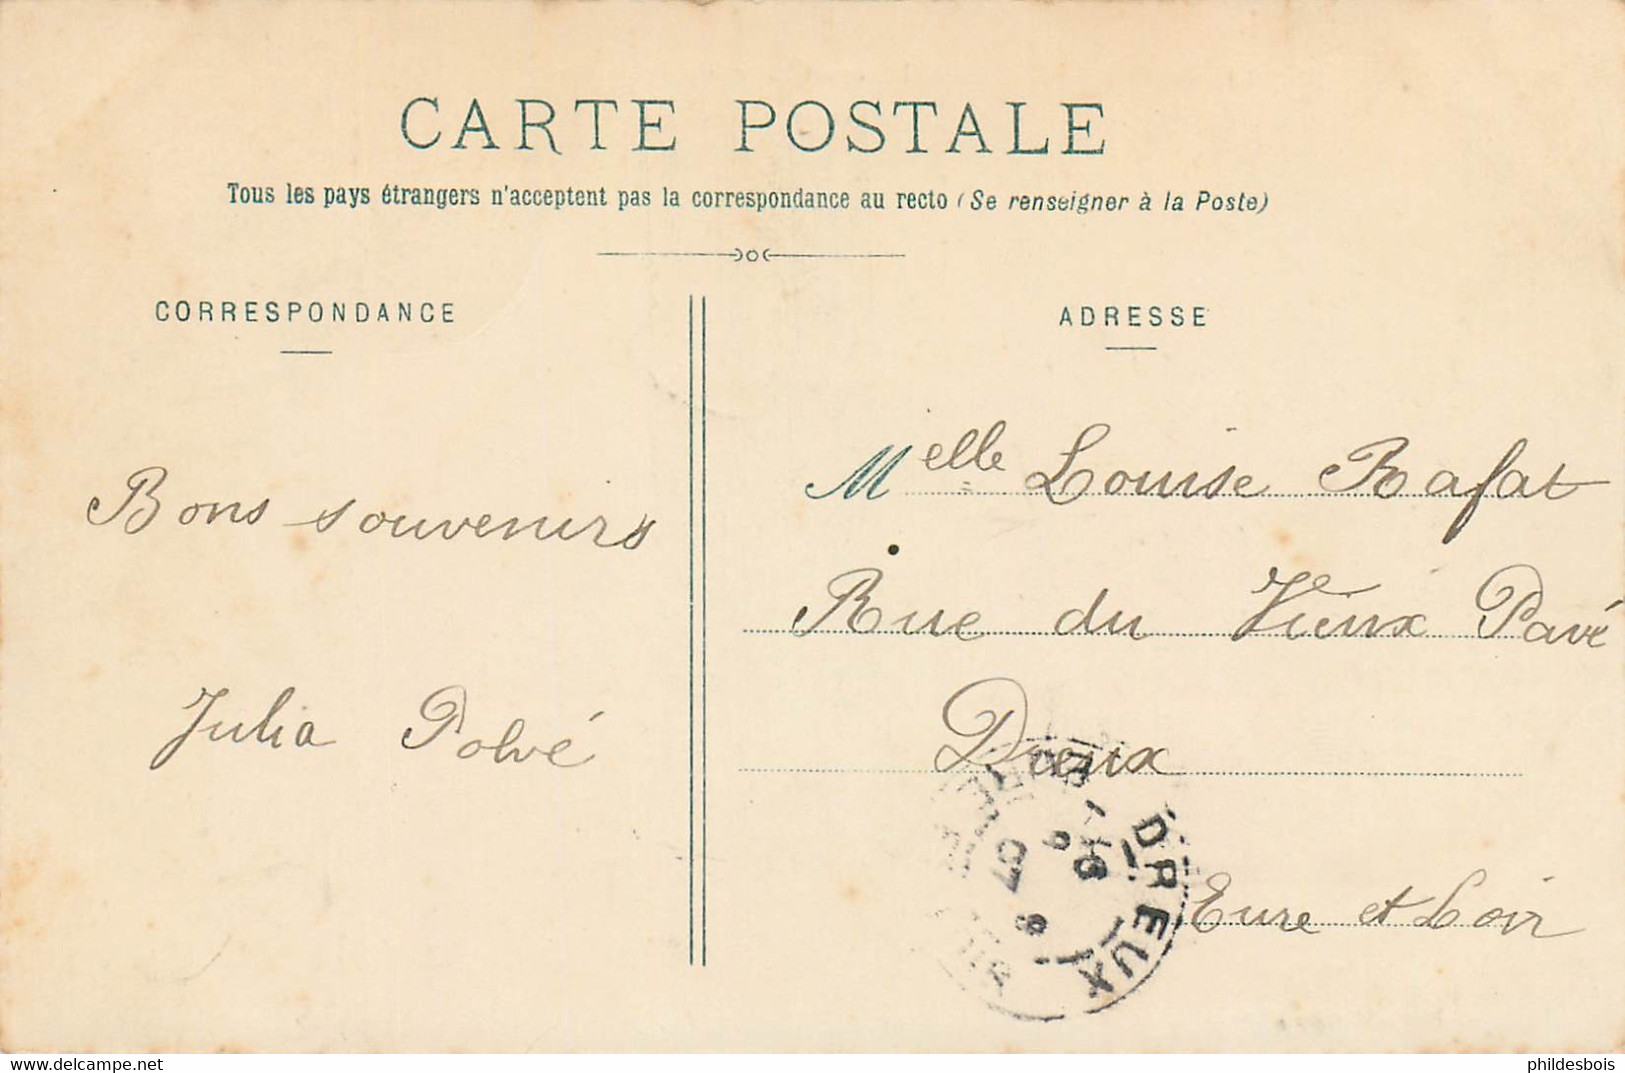 CARTE POSTALE
Tous les pays étrangers n'acceptent pas la correspondance au recto (Se renseigner à la Poste)
CORRESPONDANCE
ADRESSE
Bons souvenirs
Julia Polvé
Melle Louise Rafat
Rue du Vieux Pavé
Dreux
Eure et Loir
DREUX
07
delcampe.net
phildesbois